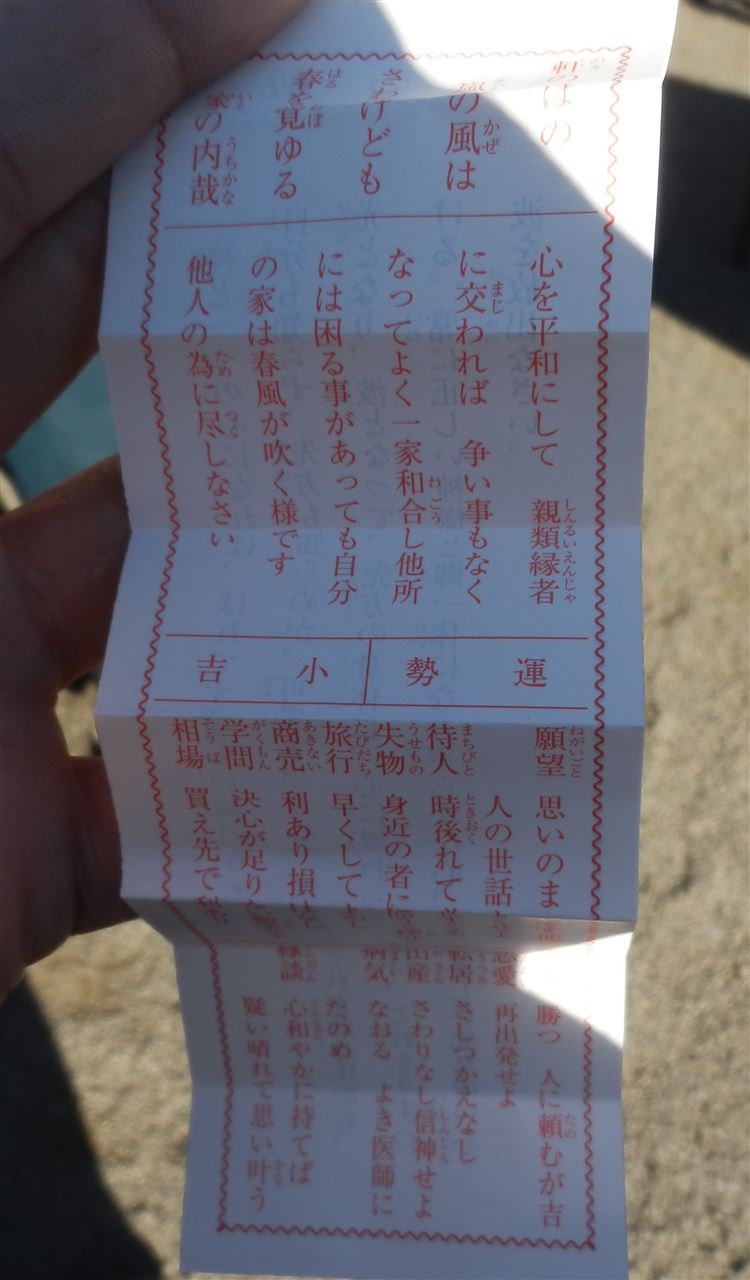 軒のはの
の風は
さわげども
春を見ゆる
家の内哉
心を平和にして 親類縁者
に交われば 争い事もなく
なってよく一家和合し他所
には困る事があっても自分
の家は春風が吹く様です
他人の為に尽しなさい
運勢 小吉
願望 思いのま
人の世話
待人 時後れて
失物 身近の者に
旅行 早くして
商売 利あり損
学問 決心が足り
相場 買え先で
勝つ 人に頼むが吉
恋愛 再出発せよ
転居 さしつかえなし
出産 さわりなし信神せよ
病気 なおる よき医師に
たのめ
縁談 心和やかに持てば
疑い晴れて思い叶う